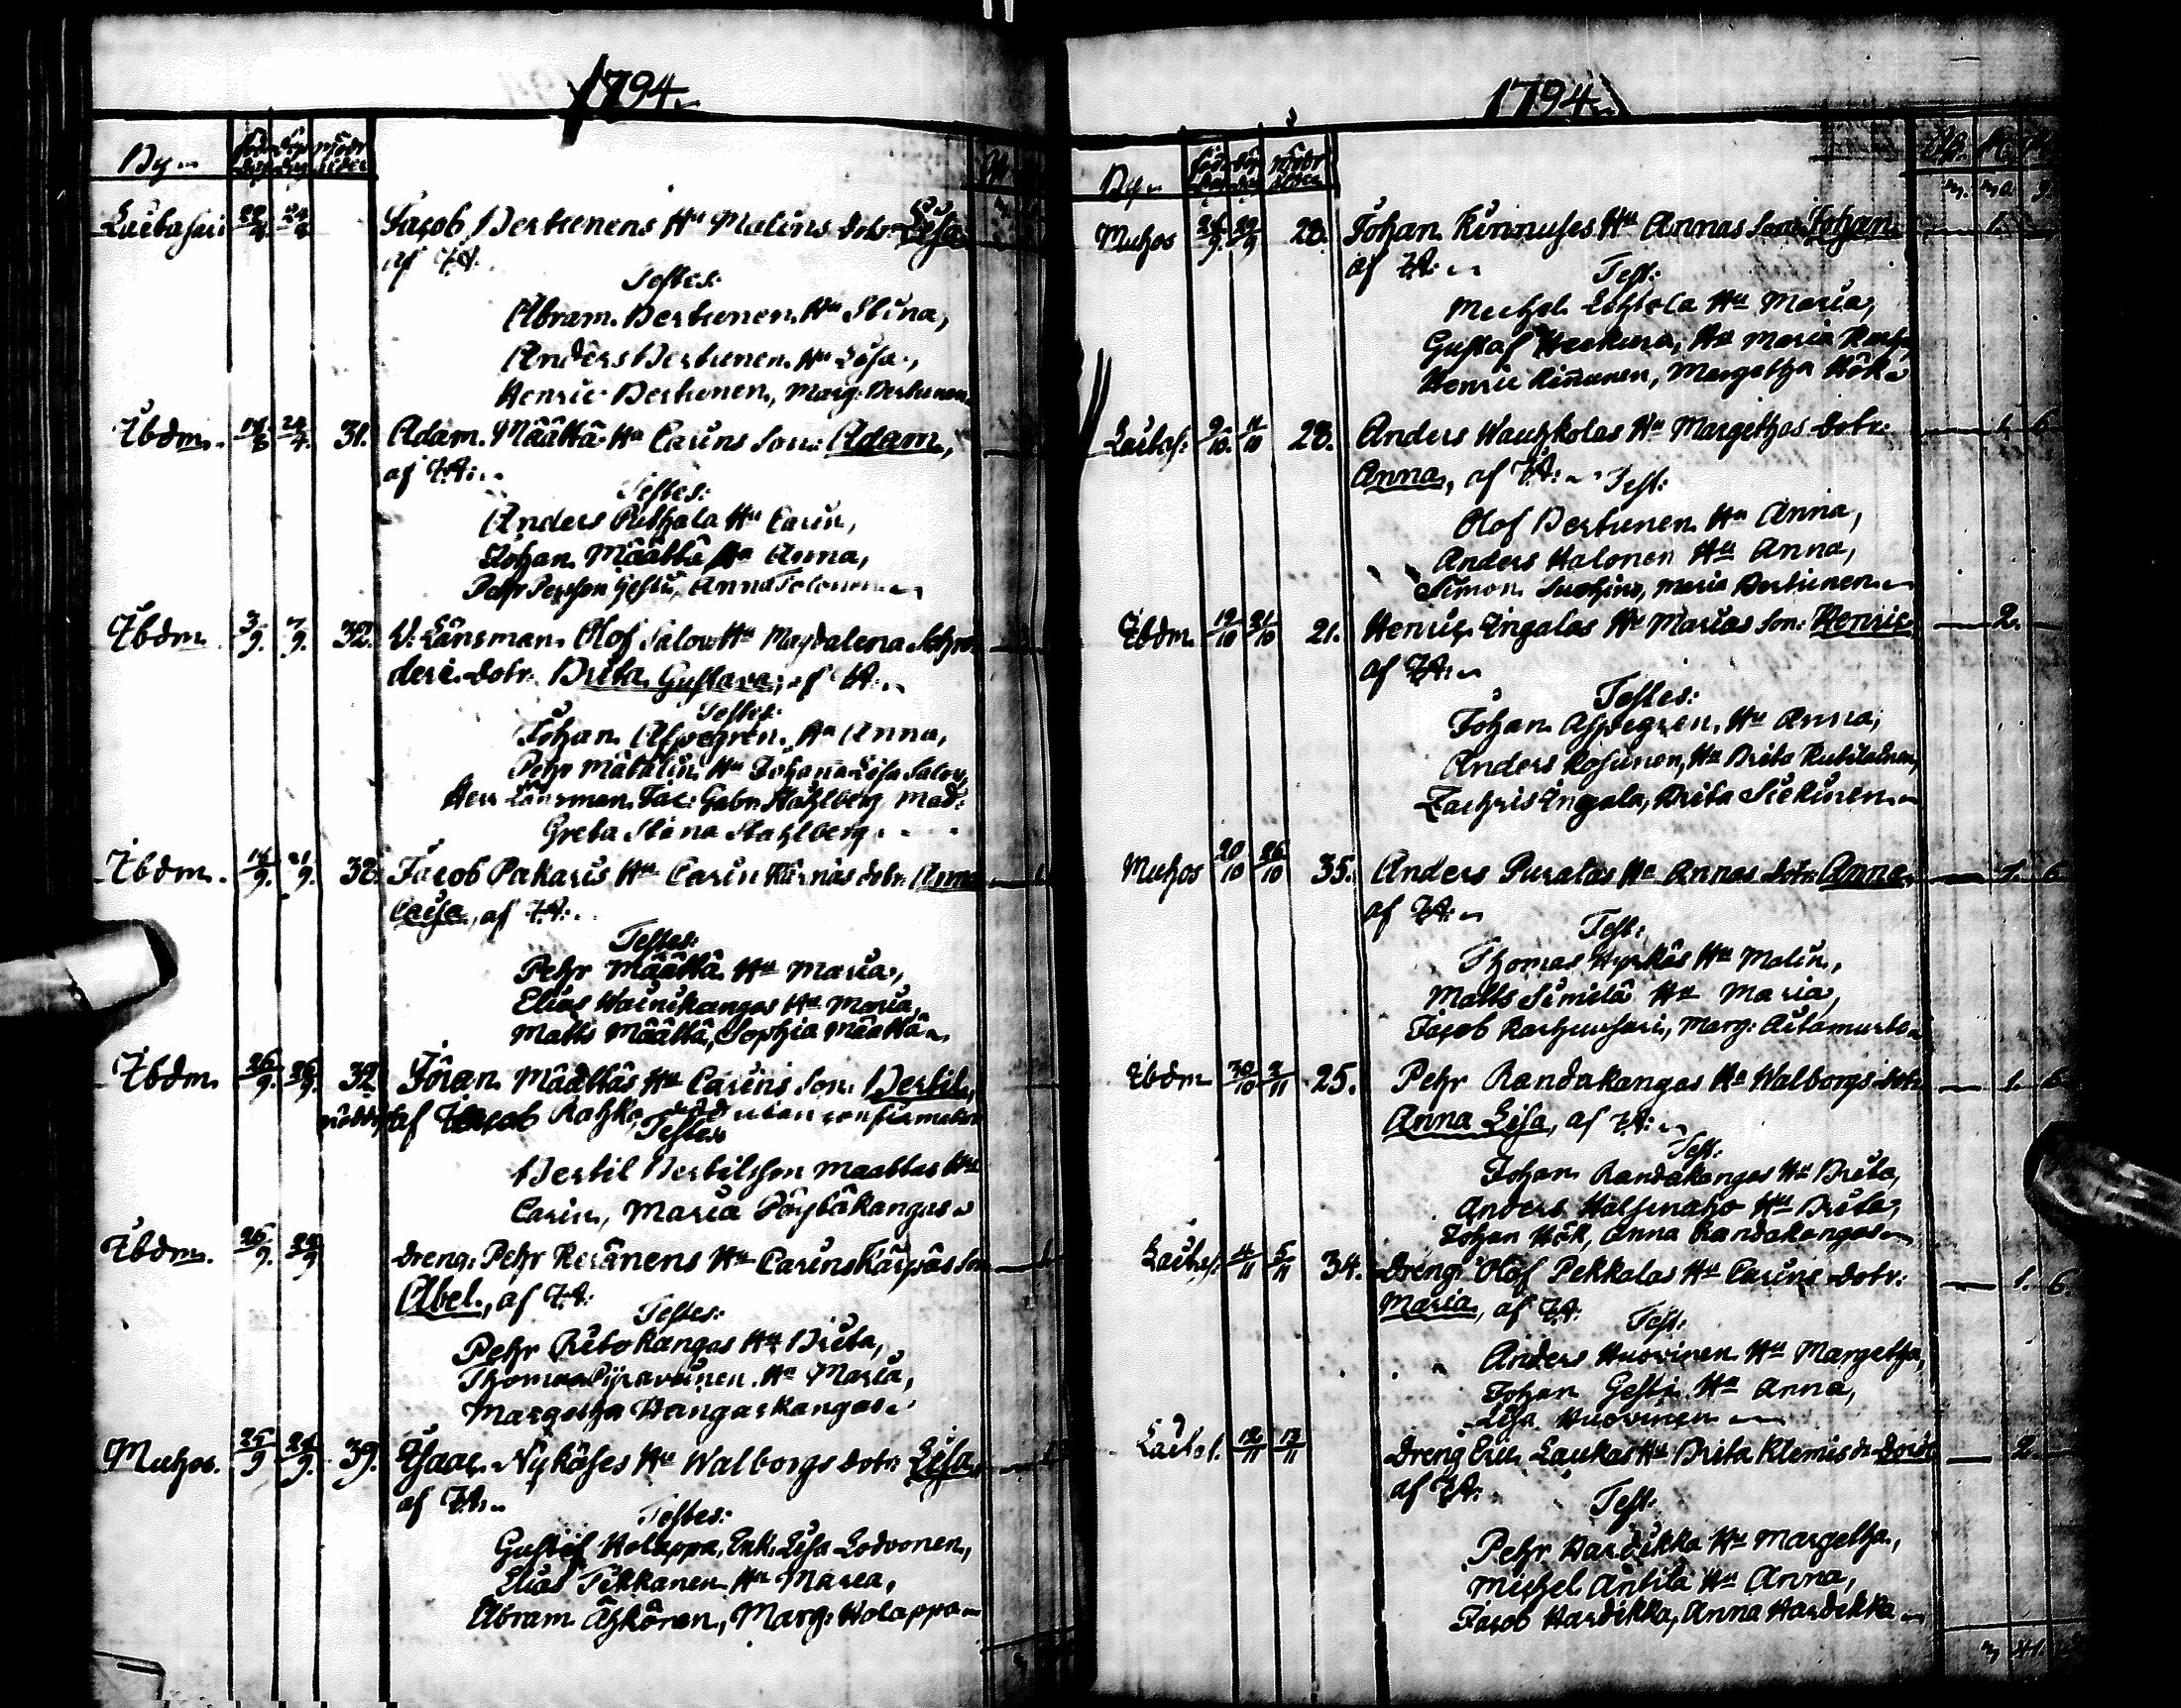 1794.
By
Laitasari 22/8 24/8 Jacob Bertunens Hu Malins dotr: Lisa
af J.A.
Testes:
Abram Bertunen Hu Stina,
Anders Bertunen Hu Lisa,
Henric Bertunen, Marg: Bertunen
Ibdm. 31. Adam Määttä Hu Carins Son: Adam,
af J.A:
Testes:
Anders Hu Carin,
Johan Määttä Hu Anna,
Pehr Persson Gesti, Anna
Ibdm 3/9. 7/9. 32. V. Länsman Olof Salow Hu Magdalena
deri dotr. Brita Gustava, af J.A:
Testes:
Johan Aspegren Hu Anna,
Pehr Hu Johana Lisa Salow,
Herr Länsman Jac: Gabr. Ståhlberg Mad:
Greta Stina Stahlberg
Ibdm. 14/9. 21/9. 38. Jacob Pakaris Hu Carin Kärnäs dotr. Anna
Caisa, af J.A:
Testes:
Pehr Määttä Hu Maria,
Elias Wainikangas Hu Maria,
Matts Määttä, Sophia Määttä
Ibdm 26/9. 26/9. 32 Jöran Määttäs Hu Carins Son: Bertil,
nöddöpt af Jacob Rahko, död utan confirmation
Testes
Bertil Bertilsson Maattas Hu
Carin, Maria Pöytäkangas
Ibdm. 26/9. 28/9 Dreng: Pehr Keränens Hu Carins Kärpäs Son
Abel, af J.A:
Testes:
Pehr Ritokangas Hu Brita,
Thomas Pyravainen Hu Maria,
Margetha Hangaskangas
Muhos. 25/9 28/9. 39. Isaac Nykäses Hu Walborgs dotr: Lisa,
af J.A:
Testes:
Gustaf Holappa, Enk. Lisa Lodvonen,
Elias Tikkanen Hu Maria,
Abram Ähkären, Marg: Holappa
1794.
By
Muhos 28/9 29/9 28. Johan Kinnuses Hu Annas Son: Johan 1.
af J.A:
Test:
Michel Lehtola Hu Maria,
Gustaf Hu Maria
Henric Kinnunen, Margetha Hök
Laitas: 9/10. 11/10 28. Anders Wauhkolas Hu Margethas dotr: 1. 6
Anna, af J.A: Test:
Olof Bertunen Hu Anna,
Anders Halonen Hu Anna,
Simon Maria Bertunen
Ibdm 19/10 21/10 21. Henric Ingalas Hu Marias Son: Henric 2.
af J.A:
Testes:
Johan Aspegren, Hu Anna,
Anders Kosunen, Hu Brita
Zachris Ingala, Brita Siekinen
Muhos 20/10 26/10 35. Anders Puralas Hu Annas dotr: Anna 1. 6
af J.A:
Test:
Thomas Hyrkäs Hu Malin,
Matts Similä Hu Maria,
Jacob Karhunsari, Marg: Aitamurto
Ibdm 30/10 2/11 25. Pehr Randakangas Hu Walborgs dotr 1. 6.
Anna Lisa, af J.A:
Test:
Johan Randakangas Hu Brita,
Anders Halsinaho Hu Brita,
Johan Hök, Anna Randakangas
Laitas: 4/11 5/11 34. Dreng Olof Pekkalas Hu Carins dotr: 1. 6.
Maria, af J.A:
Test:
Anders Huovinen Hu Margetha,
Johan Gesti Hu Anna,
Lisa Huovinen
Laitas. 12/11 17/11 Dreng Eric Laukas Hu Brita Klemis dr 2.
af J.A:
Test:
Pehr Hardikka Hu Margetha,
Michel Antila Hu Anna,
Jacob Hardikka, Anna Hardikka